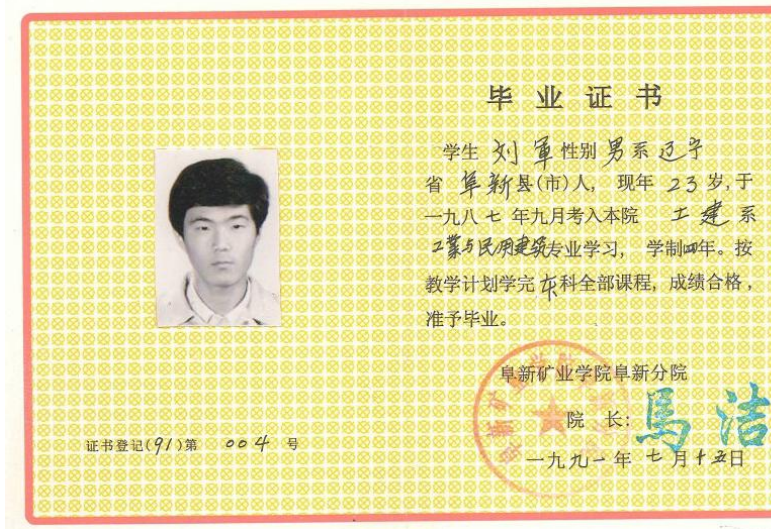 毕业证书
学生 刘军 性别 男 系 辽宁
省 阜新县(市)人, 现年 23 岁,于
一九八七年九月考入本院 土建系
工业与民用建筑专业学习, 学制四年。按
教学计划学完本科全部课程,成绩合格,
准予毕业。
阜新矿业学院阜新分院
院 长: 馬洁
一九九一年 七月十五日
证书登记(91)第 004 号